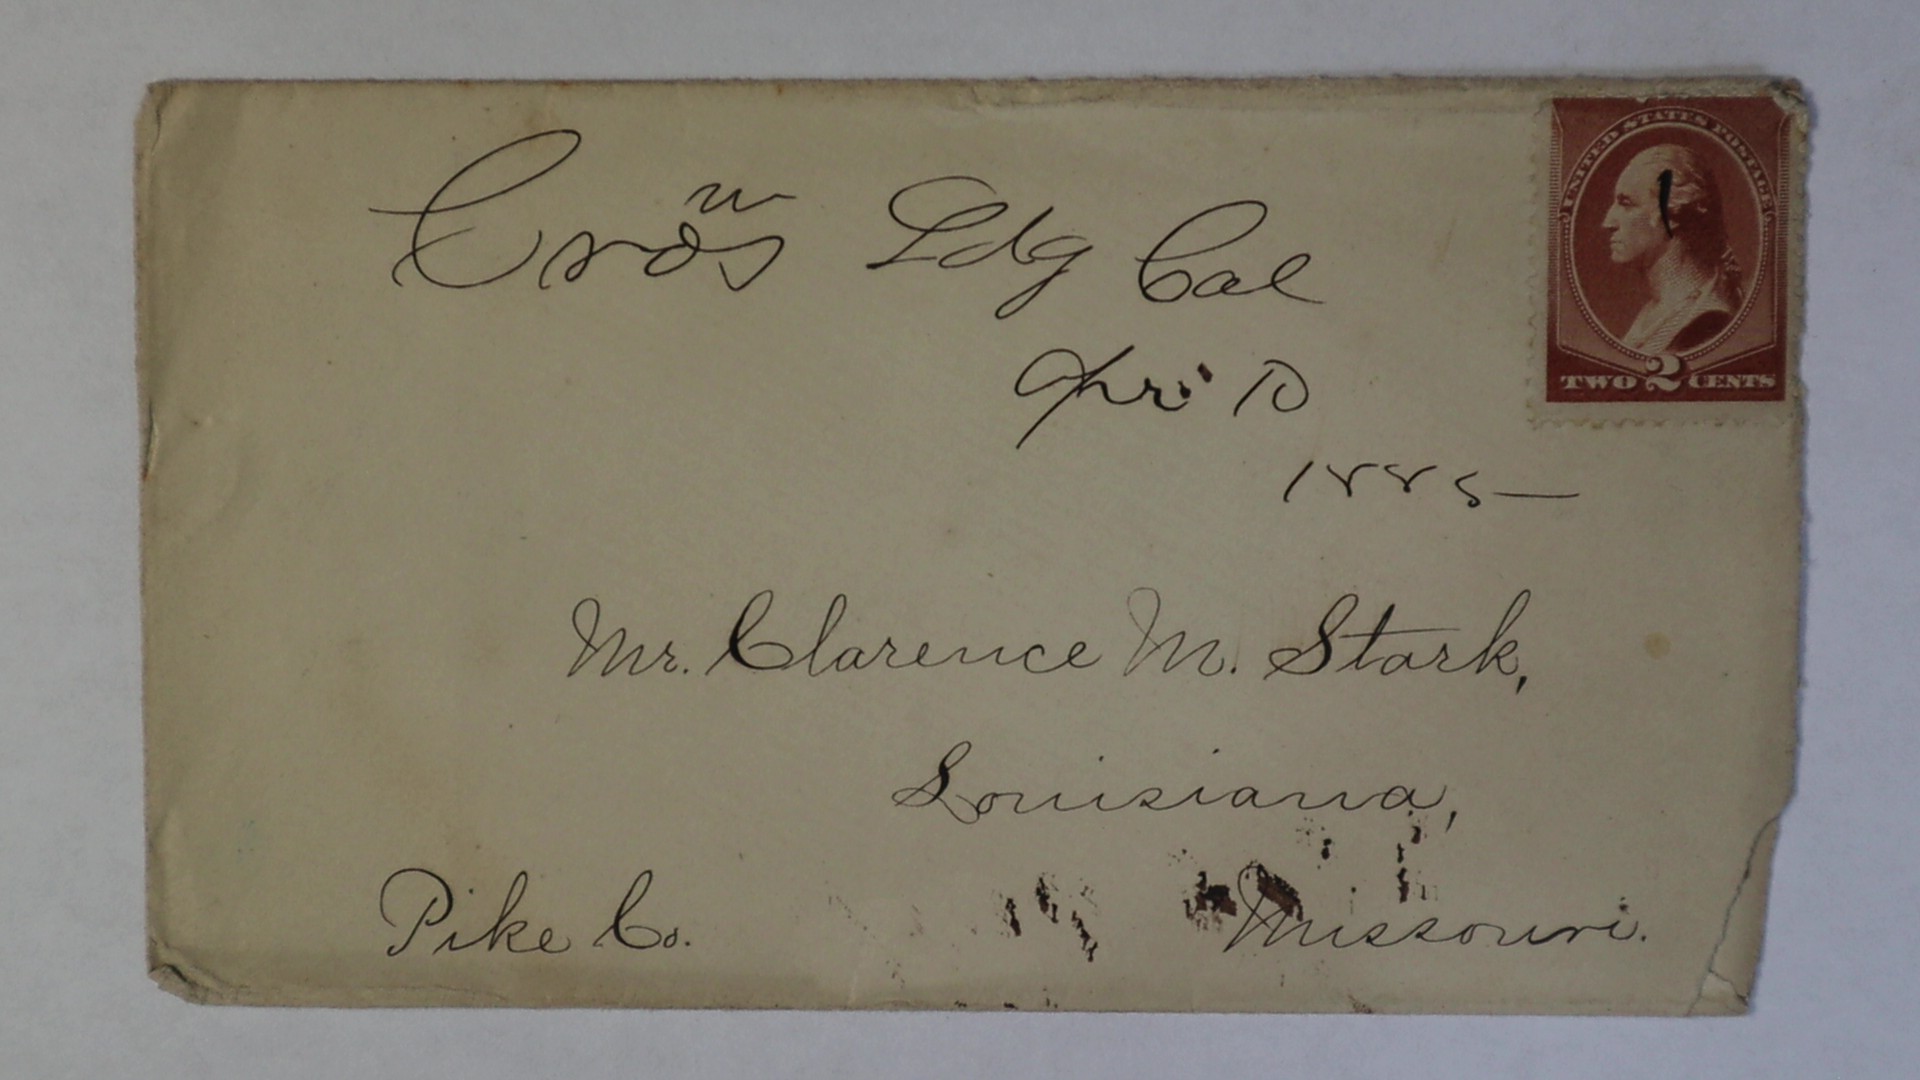 UNITED STATES POSTAGE
TWO 2 CENTS
Ldg Cal
Apri 10
1885
Mr. Clarence M. Stark,
Louisiana,
Pike Co. Missouri.